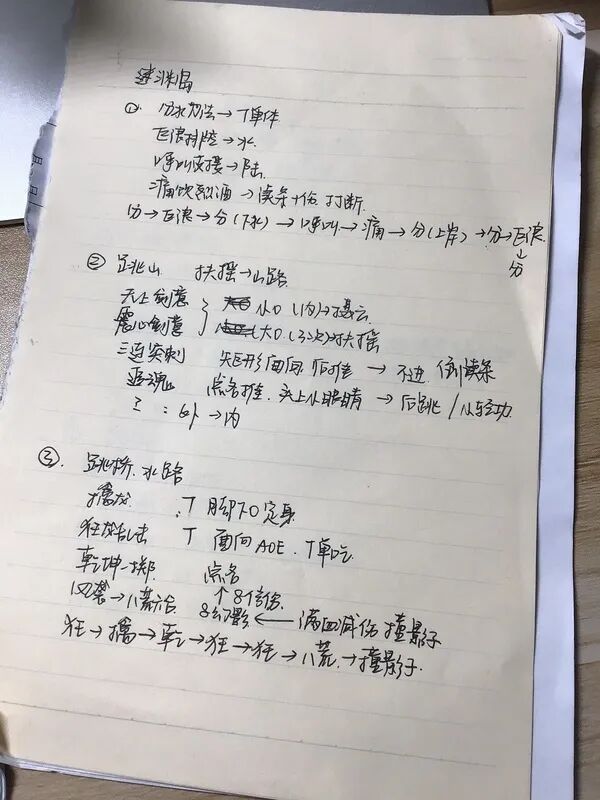 ①. 分水劲法→T单体
飞浪排空→水
呼叫支援→陆
痛饮烈酒→读条+伤 打断
分→飞浪→分(下水)→呼叫→痛→分(上岸)→分→飞浪
↓
分
② 跳山 扶摇→山路
天上剑意 } 小O(内)→蹑云
震心剑意 } (大O(3次)扶摇
三连突刺 矩形面向 后推 → 不进 倒读条
追魂 点名推. 头上小眼睛 → 后跳/小轻功
: 外→内
③. 跳桥. 水路
擒龙 : T 脚下O定身
狂龙乱击 T 面向AOE. T单吃
乾坤一掷 点名
↑8个信仰
风袭→八荒六合 8幻影 ← 满血减伤 撞影子
狂→擒→乾→狂→狂→八荒.→撞影子.